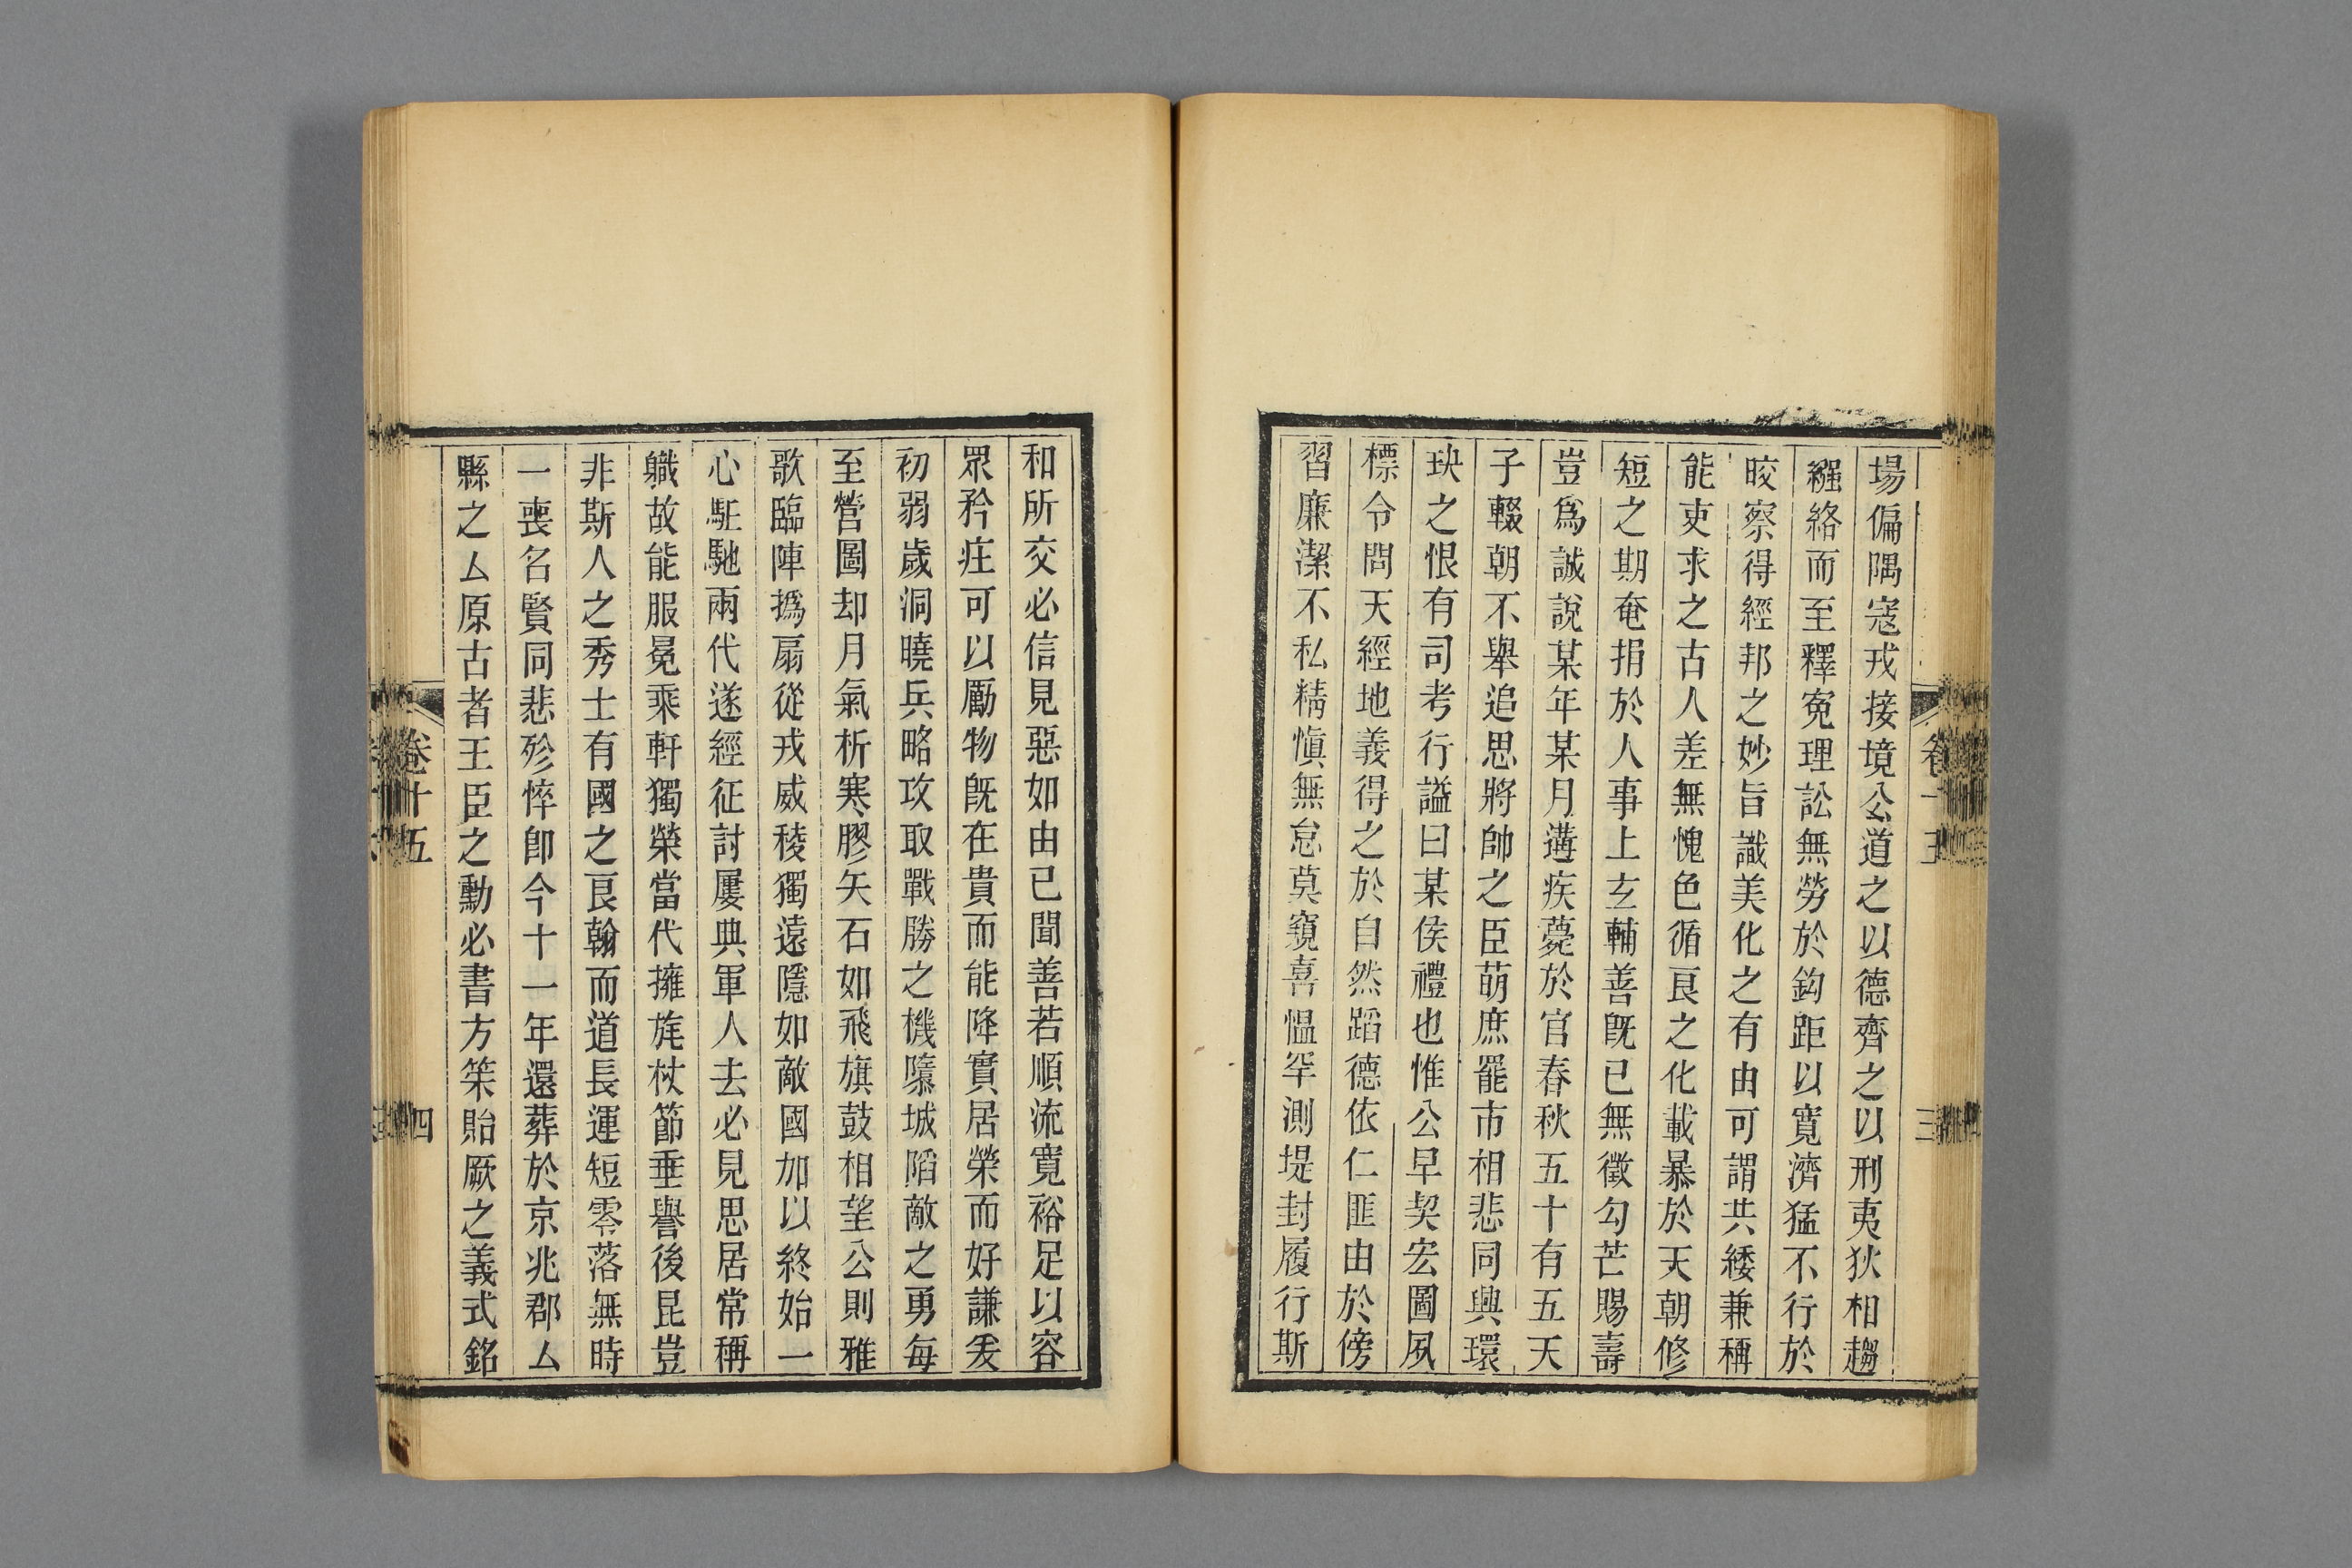 場偏隅寇戎接境公道之以德齊之以刑夷狄相趨
繦絡而至釋寃理訟無勞於鈎距以寬濟猛不行於
晈察得經邦之妙旨識美化之有由可謂共綏兼稱
能吏求之古人差無愧色循良之化載暴於天朝修
短之期奄捐於人事上玄輔善旣已無徵勾芒賜壽
豈爲誠說某年某月遘疾薨於官春秋五十有五天
子輟朝不舉追思將帥之臣萌庶罷市相悲同興環
玦之恨有司考行謚曰某侯禮也惟公早契宏圖夙
標令問天經地義得之於自然蹈德依仁匪由於傍
習廉潔不私精愼無怠莫窺喜慍罕測堤封履行斯
卷十五
三
和所交必信見惡如由己聞善若順流寬裕足以容
眾矜庄可以勵物旣在貴而能降實居榮而好謙爰
初弱歲洞曉兵略攻取戰勝之機隳城陷敵之勇每
至營圖却月氣析寒膠矢石如飛旗鼓相望公則雅
歌臨陣撝扇從戎威稜獨遠隱如敵國加以終始一
心駈馳兩代遂經征討屢典軍人去必見思居常稱
軄故能服冕乘軒獨榮當代擁旄杖節垂譽後昆豈
非斯人之秀士有國之良翰而道長運短零落無時
一喪名賢同悲殄悴卽今十一年還葬於京兆郡厶
縣之厶原古者王臣之勳必書方筞貽厥之義式銘
卷十五
四